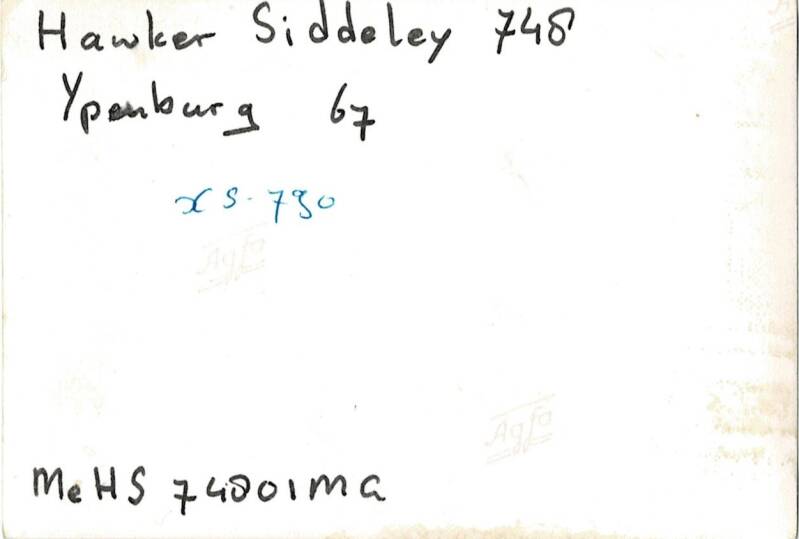 Hawker Siddeley 748
Ypenburg 67
XS-790
Agfa
Agfa
MeHS 74801MA